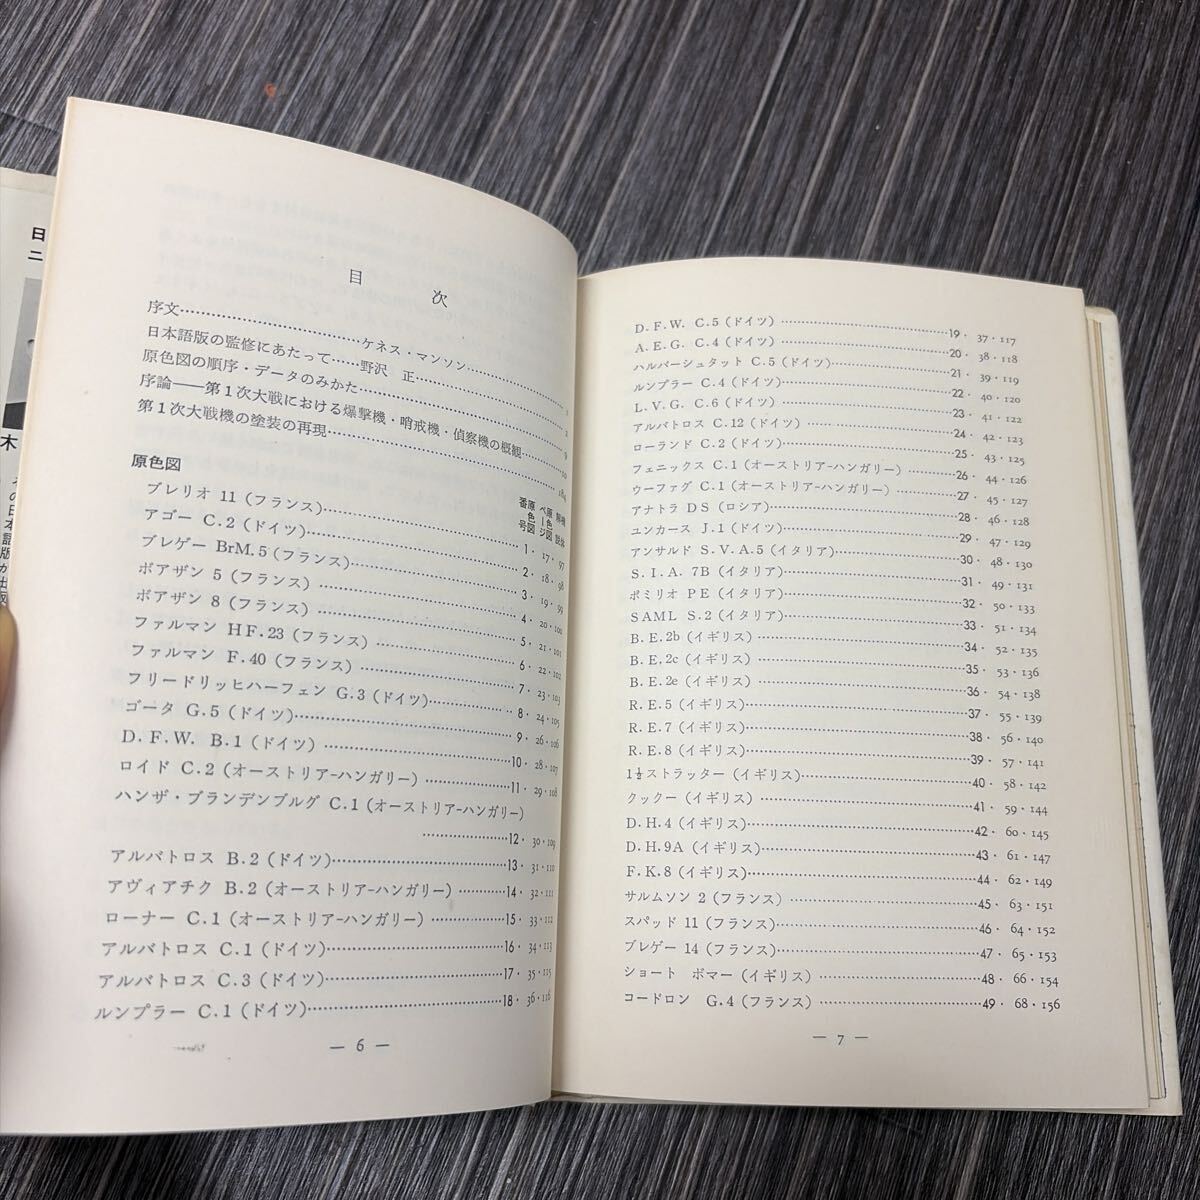 目次
序文………ケネス・マンソン………1
日本語版の監修にあたって……野沢 正………2
原色図の順序・データのみかた………9
序論——第1次大戦における爆撃機・哨戒機・偵察機の概観………10
第1次大戦機の塗装の再現………184
原色図
原色図番号 原色図ページ 機体解説
ブレリオ 11 (フランス)………1・17・97
アゴー C.2 (ドイツ)………2・18・98
ブレゲー BrM.5 (フランス)………3・19・99
ボアザン 5 (フランス)………4・20・100
ボアザン 8 (フランス)………5・21・101
ファルマン HF.23 (フランス)………6・22・102
ファルマン F.40 (フランス)………7・23・103
フリードリッヒハーフェン G.3 (ドイツ)………8・24・105
ゴータ G.5 (ドイツ)………9・26・106
D.F.W. B.1 (ドイツ)………10・28・107
ロイド C.2 (オーストリア-ハンガリー)………11・29・108
ハンザ・ブランデンブルグ C.1 (オーストリア-ハンガリー)
………12・30・109
アルバトロス B.2 (ドイツ)………13・31・110
アヴィアチク B.2 (オーストリア-ハンガリー)………14・32・111
ローナー C.1 (オーストリア-ハンガリー)………15・33・112
アルバトロス C.1 (ドイツ)………16・34・113
アルバトロス C.3 (ドイツ)………17・35・115
ルンプラー C.1 (ドイツ)………18・36・116
— 6 —
D.F.W. C.5 (ドイツ)………19・37・117
A.E.G. C.4 (ドイツ)………20・38・118
ハルバーシュタット C.5 (ドイツ)………21・39・119
ルンプラー C.4 (ドイツ)………22・40・120
L.V.G. C.6 (ドイツ)………23・41・122
アルバトロス C.12 (ドイツ)………24・42・123
ローランド C.2 (ドイツ)………25・43・125
フェニックス C.1 (オーストリア-ハンガリー)………26・44・126
ウーファグ C.1 (オーストリア-ハンガリー)………27・45・127
アナトラ DS (ロシア)………28・46・128
ユンカース J.1 (ドイツ)………29・47・129
アンサルド S.V.A.5 (イタリア)………30・48・130
S.I.A. 7B (イタリア)………31・49・131
ポミリオ PE (イタリア)………32・50・133
SAML S.2 (イタリア)………33・51・134
B.E.2b (イギリス)………34・52・135
B.E.2c (イギリス)………35・53・136
B.E.2e (イギリス)………36・54・138
R.E.5 (イギリス)………37・55・139
R.E.7 (イギリス)………38・56・140
R.E.8 (イギリス)………39・57・141
1½ストラッター (イギリス)………40・58・142
クックー (イギリス)………41・59・144
D.H.4 (イギリス)………42・60・145
D.H.9A (イギリス)………43・61・147
F.K.8 (イギリス)………44・62・149
サルムソン 2 (フランス)………45・63・151
スパッド 11 (フランス)………46・64・152
ブレゲー 14 (フランス)………47・65・153
ショート ボマー (イギリス)………48・66・154
コードロン G.4 (フランス)………49・68・156
— 7 —